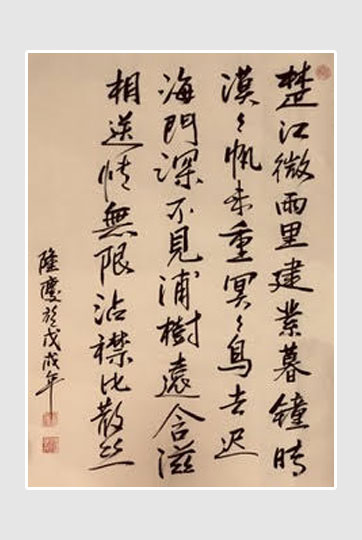 楚江微雨里建業暮鐘時
漠〻帆来重冥〻鳥去迟
海門深不見浦樹遠含滋
相送情無限沾襟比散丝
隆慶於戊戌年